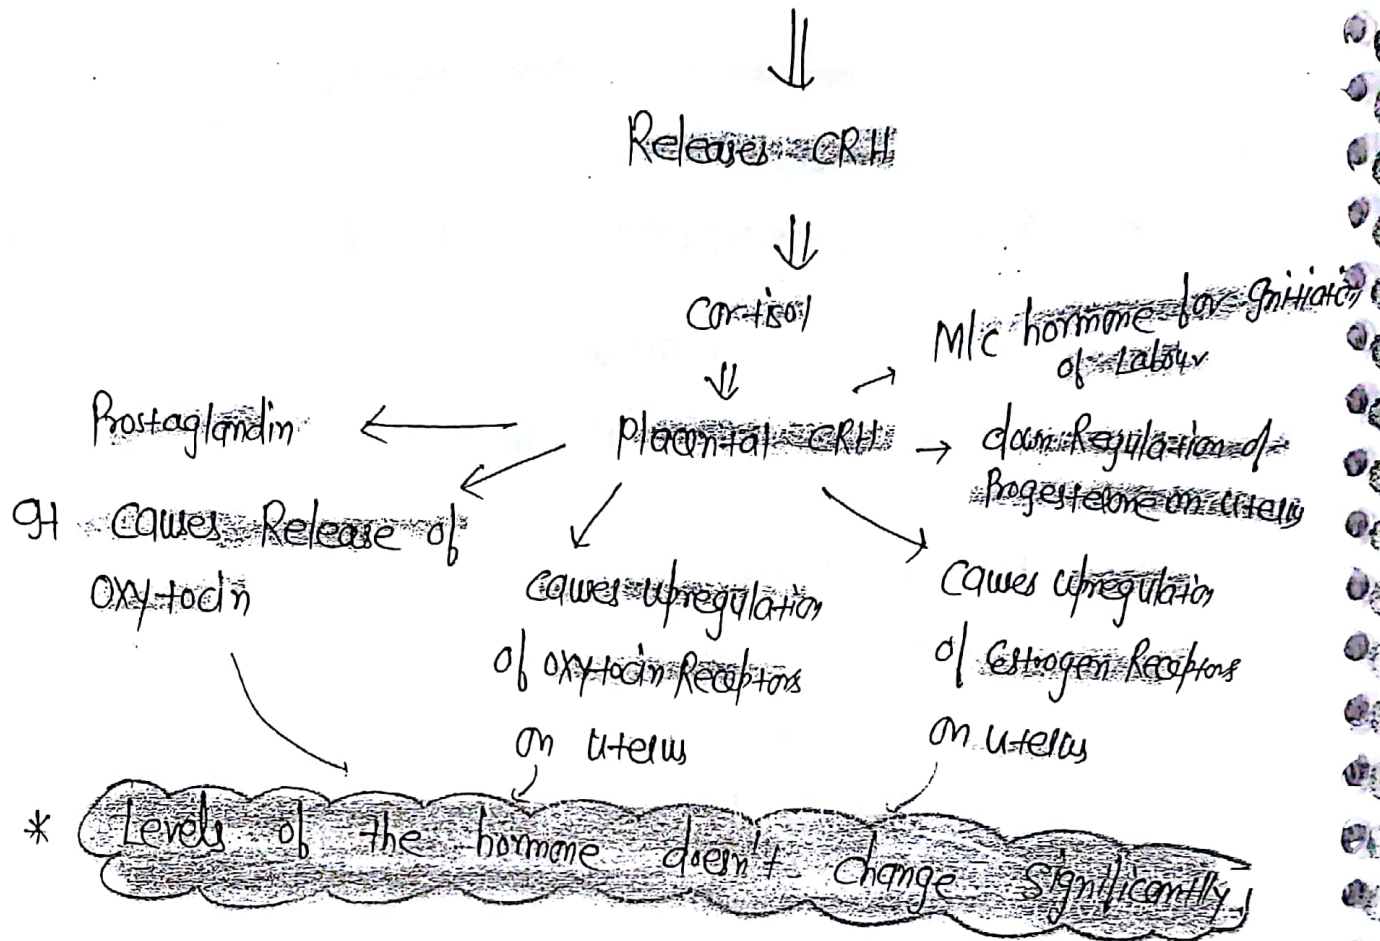 Releases CRH
Cortisol
M/c hormone for Initiation
of Labour
Prostaglandin
Placental CRH
down Regulation of
Progesterone on Uterus
It causes Release of
Oxytocin
causes upregulation
of oxytocin Receptors
on Uterus
causes upregulation
of Estrogen Receptors
on Uterus
* Levels of the hormone doesn't change significantly!